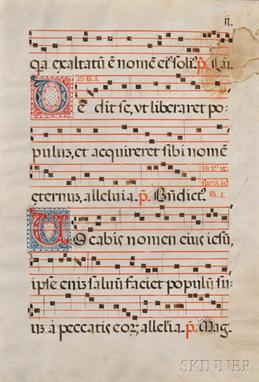 qa exaltatū ē nomē ei⁹ soli⁹. p̄.
De dit se, vt liberaret po-
pulus, et acquireret sibi nomē
eternus, alleluia. p̄. Bn̄dict⁹.
Uocabis nomen eius iesū,
ipse enis saluū faciet populū su-
us à peccatis eoꝝ alleľa. p̄. Mag.
SKINNER